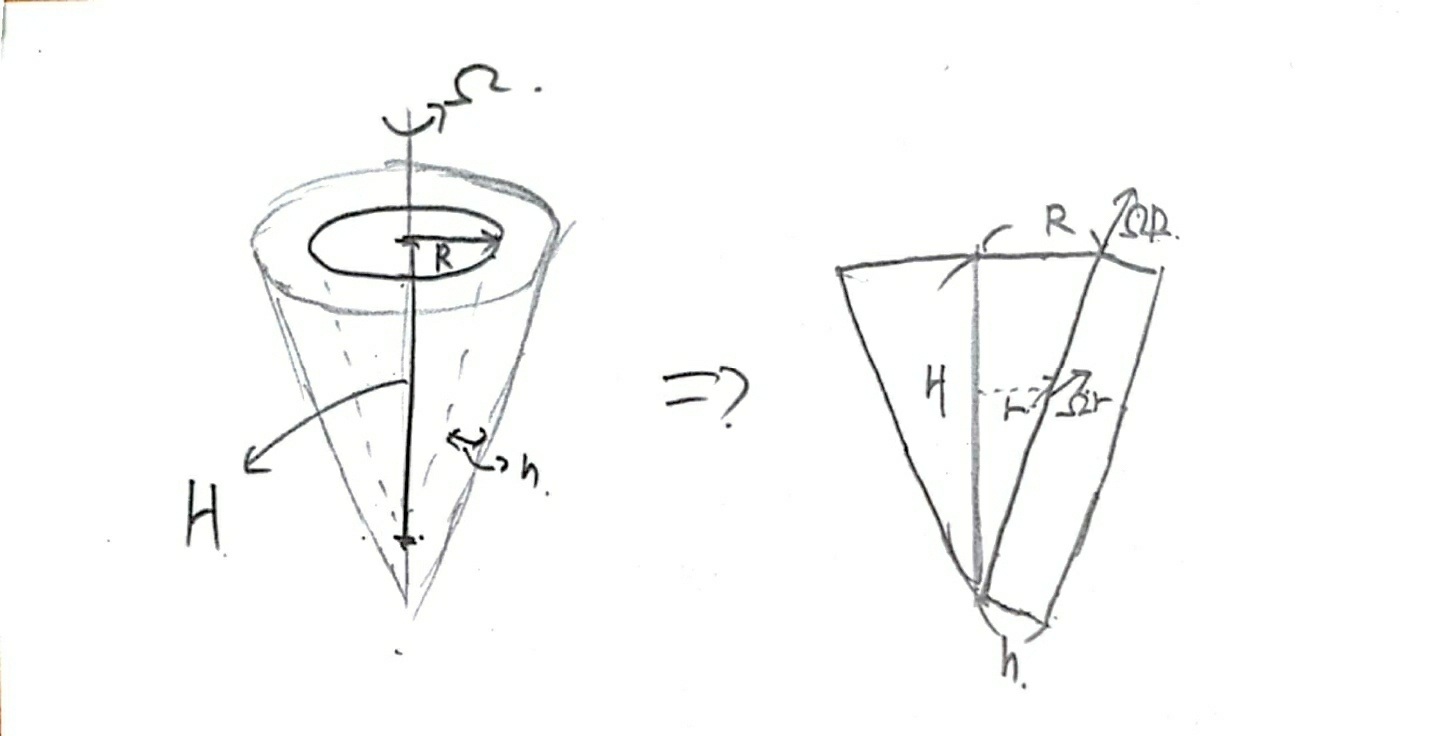 Ω.
R
H
h.
=>?
R
ΩR.
H
r
Ωr
h.